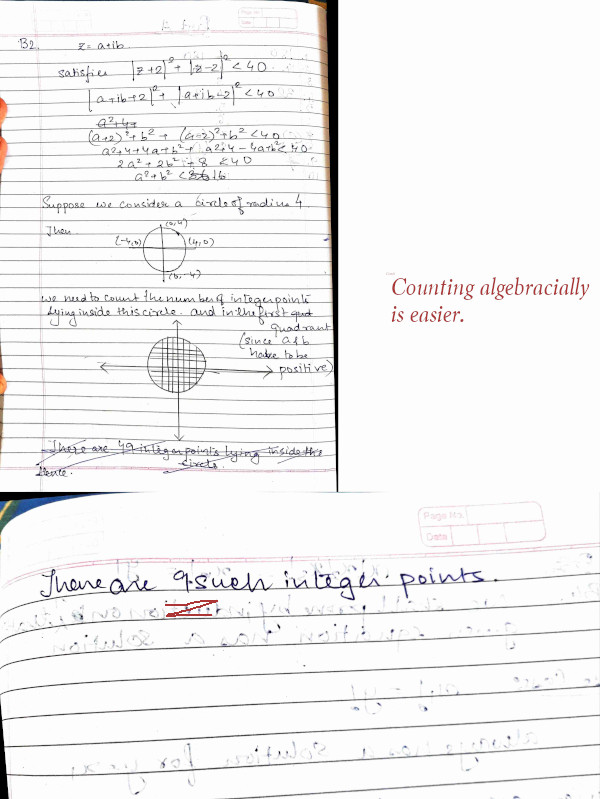 B2. z = a+ib.
satisfies |z+2|² + |z-2|² < 40
|a+ib+2|² + |a+ib-2|² < 40
a²+4+
(a+2)²+b² + (a-2)²+b² < 40
a²+4+4a+b² + a²+4-4a+b² < 40
2a²+2b²+8 < 40
a²+b² < 16
Suppose we consider a circle of radius 4.
Then
(0,4)
(-4,0) (4,0)
(0,-4)
we need to count the number of integer points
lying inside this circle. and in the first quad
quadrant
(since a & b
have to be
positive)
There are 49 integer points lying inside this
circle.
Hence.
Counting algebracially
is easier.
Page No.
Date
There are 9 such integer points.